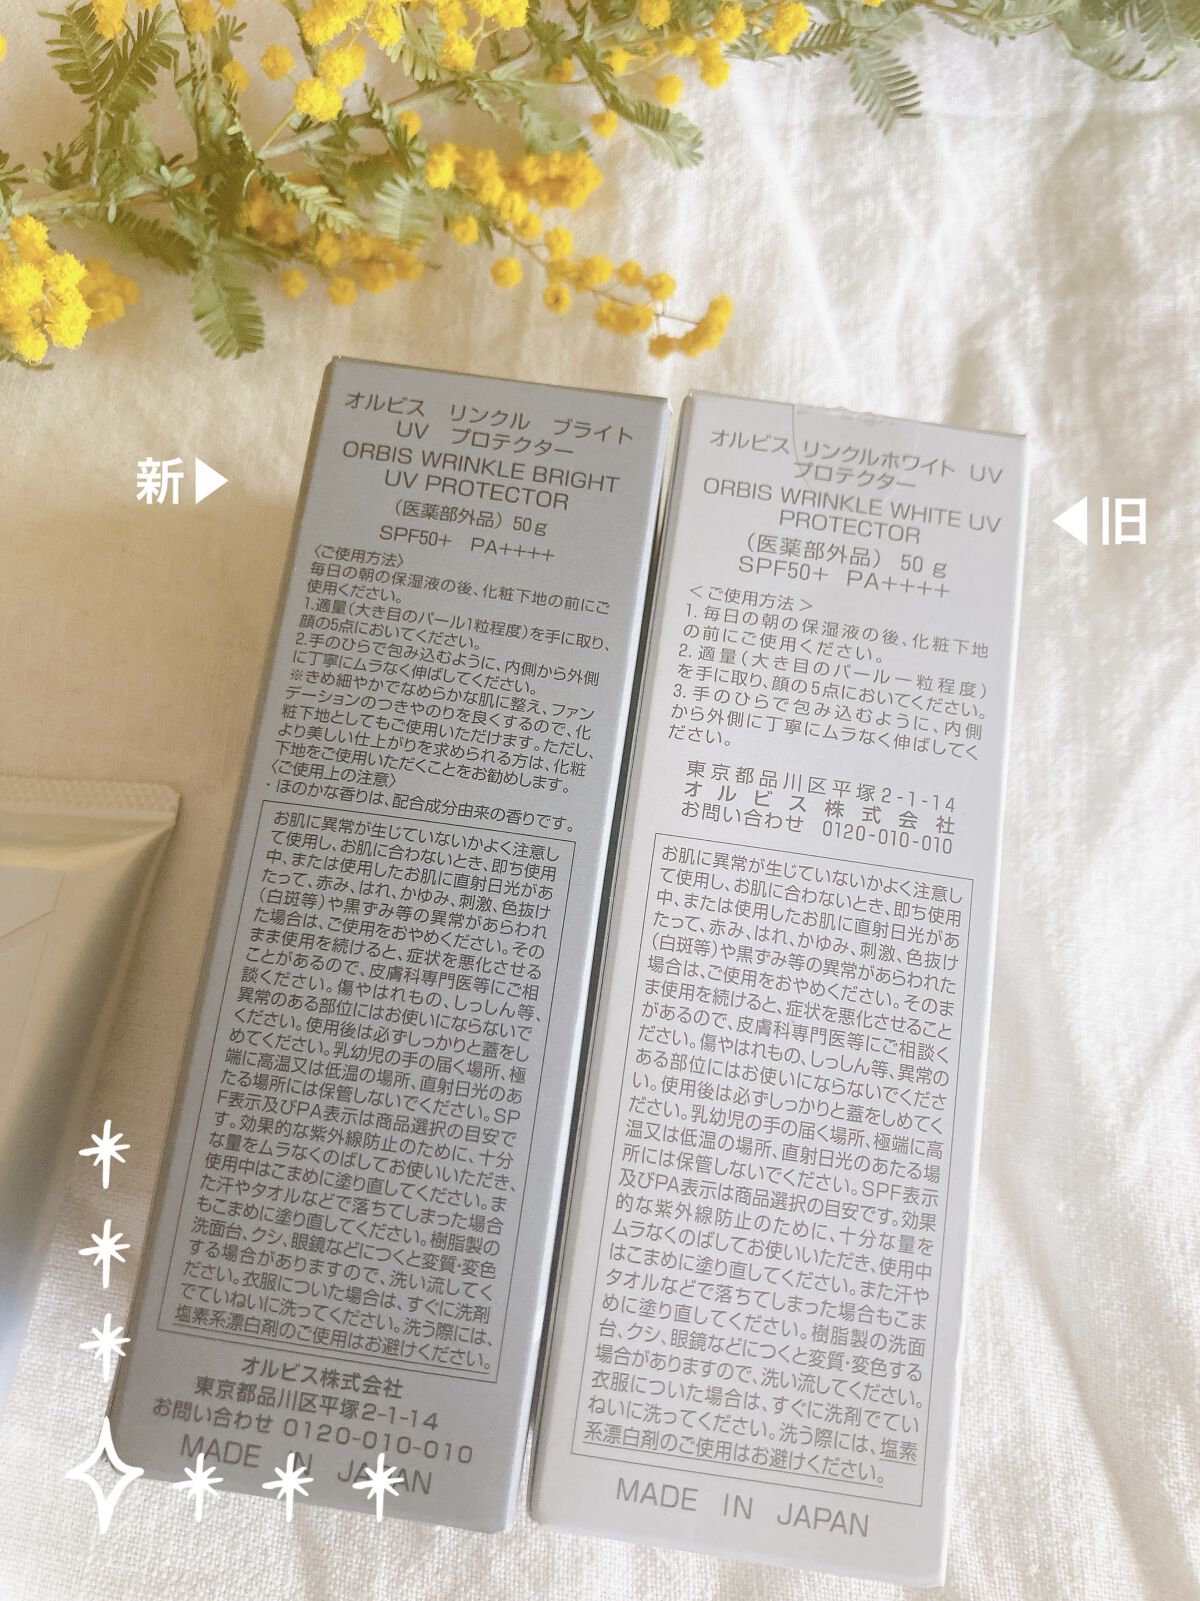 新▶
オルビス リンクル ブライト
UV プロテクター
ORBIS WRINKLE BRIGHT
UV PROTECTOR
（医薬部外品）50g
SPF50+ PA++++
〈ご使用方法〉
毎日の朝の保湿液の後、化粧下地の前にご
使用ください。
1.適量（大き目のパール1粒程度）を手に取り、
顔の5点においてください。
2.手のひらで包み込むように、内側から外側
に丁寧にムラなく伸ばしてください。
※きめ細やかでなめらかな肌に整え、ファン
デーションのつきやのりを良くするので、化
粧下地としてもご使用いただけます。ただし、
より美しい仕上がりを求められる方は、化粧
下地をご使用いただくことをお勧めします。
〈ご使用上の注意〉
・ほのかな香りは、配合成分由来の香りです。
お肌に異常が生じていないかよく注意し
て使用し、お肌に合わないとき、即ち使用
中、または使用したお肌に直射日光があ
たって、赤み、はれ、かゆみ、刺激、色抜け
（白斑等）や黒ずみ等の異常があらわれ
た場合は、ご使用をおやめください。その
まま使用を続けると、症状を悪化させる
ことがあるので、皮膚科専門医等にご相
談ください。傷やはれもの、しっしん等、
異常のある部位にはお使いにならないで
ください。使用後は必ずしっかりと蓋をし
めてください。乳幼児の手の届く場所、極
端に高温又は低温の場所、直射日光のあ
たる場所には保管しないでください。SP
F表示及びPA表示は商品選択の目安で
す。効果的な紫外線防止のために、十分
な量をムラなくのばしてお使いいただき、
使用中はこまめに塗り直してください。ま
た汗やタオルなどで落ちてしまった場合
もこまめに塗り直してください。樹脂製の
洗面台、クシ、眼鏡などにつくと変質・変色
する場合がありますので、洗い流してく
ださい。衣服についた場合は、すぐに洗剤
でていねいに洗ってください。洗う際には、
塩素系漂白剤のご使用はお避けください。
オルビス株式会社
東京都品川区平塚2-1-14
お問い合わせ 0120-010-010
MADE IN JAPAN
◀旧
オルビス リンクルホワイト UV
プロテクター
ORBIS WRINKLE WHITE UV
PROTECTOR
（医薬部外品） 50 g
SPF50+ PA++++
＜ご使用方法＞
1. 毎日の朝の保湿液の後、化粧下地
の前にご使用ください。
2. 適量（大き目のパール一粒程度）
を手に取り、顔の5点においてください。
3. 手のひらで包み込むように、内側
から外側に丁寧にムラなく伸ばしてく
ださい。
東京都品川区平塚2-1-14
オルビス株式会社
お問い合わせ 0120-010-010
お肌に異常が生じていないかよく注意し
て使用し、お肌に合わないとき、即ち使用
中、または使用したお肌に直射日光があ
たって、赤み、はれ、かゆみ、刺激、色抜け
（白斑等）や黒ずみ等の異常があらわれた
場合は、ご使用をおやめください。そのま
ま使用を続けると、症状を悪化させること
があるので、皮膚科専門医等にご相談く
ださい。傷やはれもの、しっしん等、異常の
ある部位にはお使いにならないでくださ
い。使用後は必ずしっかりと蓋をしめてく
ださい。乳幼児の手の届く場所、極端に高
温又は低温の場所、直射日光のあたる場
所には保管しないでください。SPF表示
及びPA表示は商品選択の目安です。効果
的な紫外線防止のために、十分な量を
ムラなくのばしてお使いいただき、使用中
はこまめに塗り直してください。また汗や
タオルなどで落ちてしまった場合もこま
めに塗り直してください。樹脂製の洗面
台、クシ、眼鏡などにつくと変質・変色する
場合がありますので、洗い流してください。
衣服についた場合は、すぐに洗剤でてい
ねいに洗ってください。洗う際には、塩素
系漂白剤のご使用はお避けください。
MADE IN JAPAN